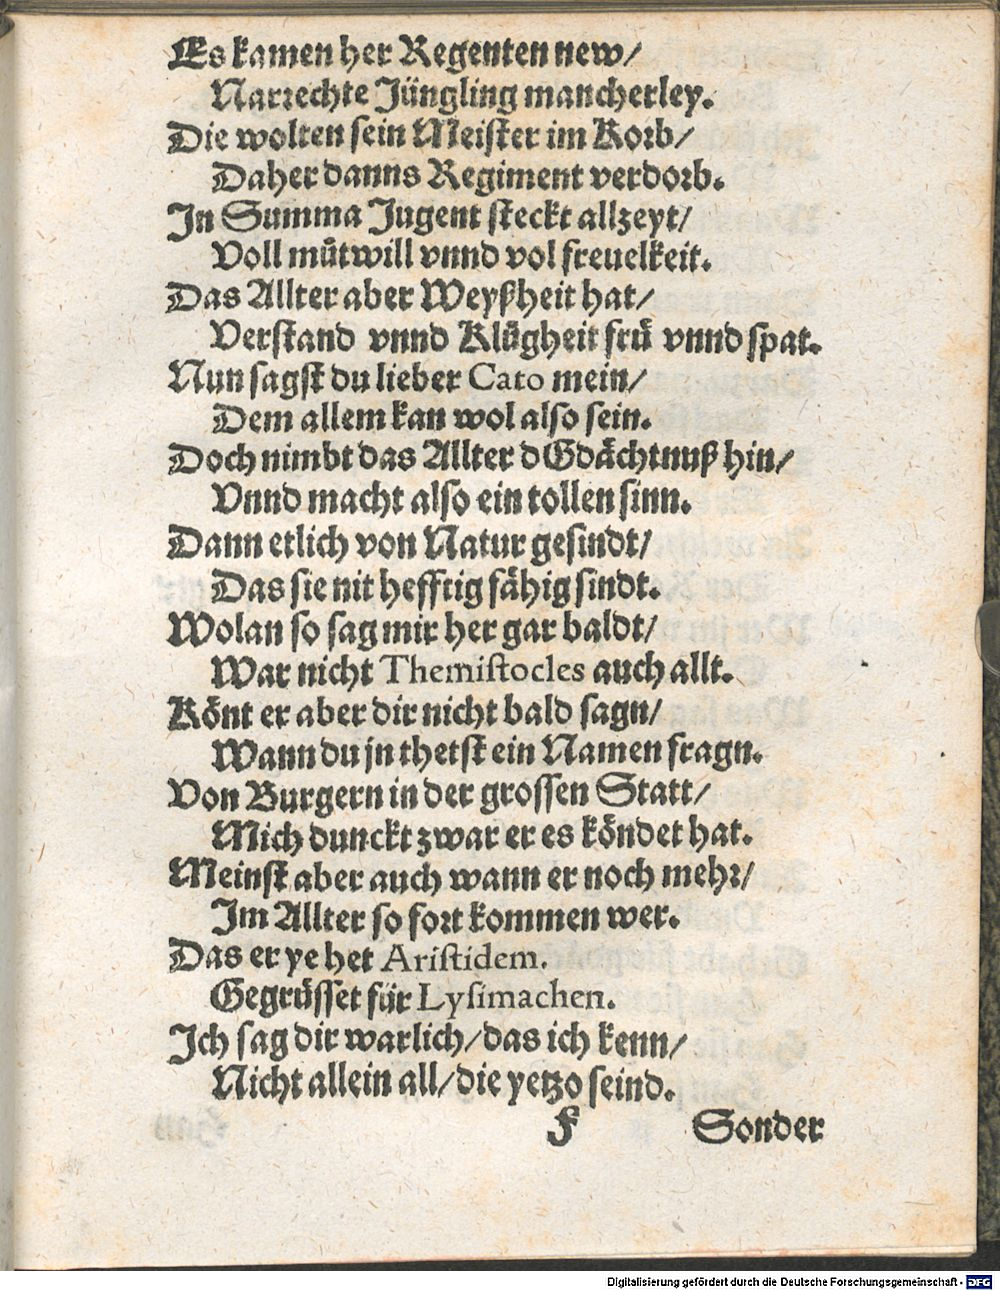 Es kamen her Regenten new/
Narrechte Jüngling mancherley.
Die wolten sein Meister im Korb/
Daher danns Regiment verdorb.
Jn Summa Jugent steckt allzeyt/
Voll můtwill vnnd vol freuelkeit.
Das Allter aber Weyßheit hat/
Verstand vnnd Klůgheit frů vnnd spat.
Nun sagst du lieber Cato mein/
Dem allem kan wol also sein.
Doch nimbt das Allter dGdächtnuß hin/
Vnnd macht also ein tollen sinn.
Dann etlich von Natur gesindt/
Das sie nit hefftig fähig sindt.
Wolan so sag mir her gar baldt/
War nicht Themistocles auch allt.
Könt er aber dir nicht bald sagn/
Wann du jn thetst ein Namen fragn.
Von Burgern in der grossen Statt/
Mich dunckt zwar er es köndet hat.
Meinst aber auch wann er noch mehr/
Jm Allter so fort kommen wer.
Das er ye het Aristidem.
Gegrüsset für Lysimachen.
Jch sag dir warlich/das ich kenn/
Nicht allein all/die yetzo seind.
f Sonder
Digitalisierung gefördert durch die Deutsche Forschungsgemeinschaft - DFG